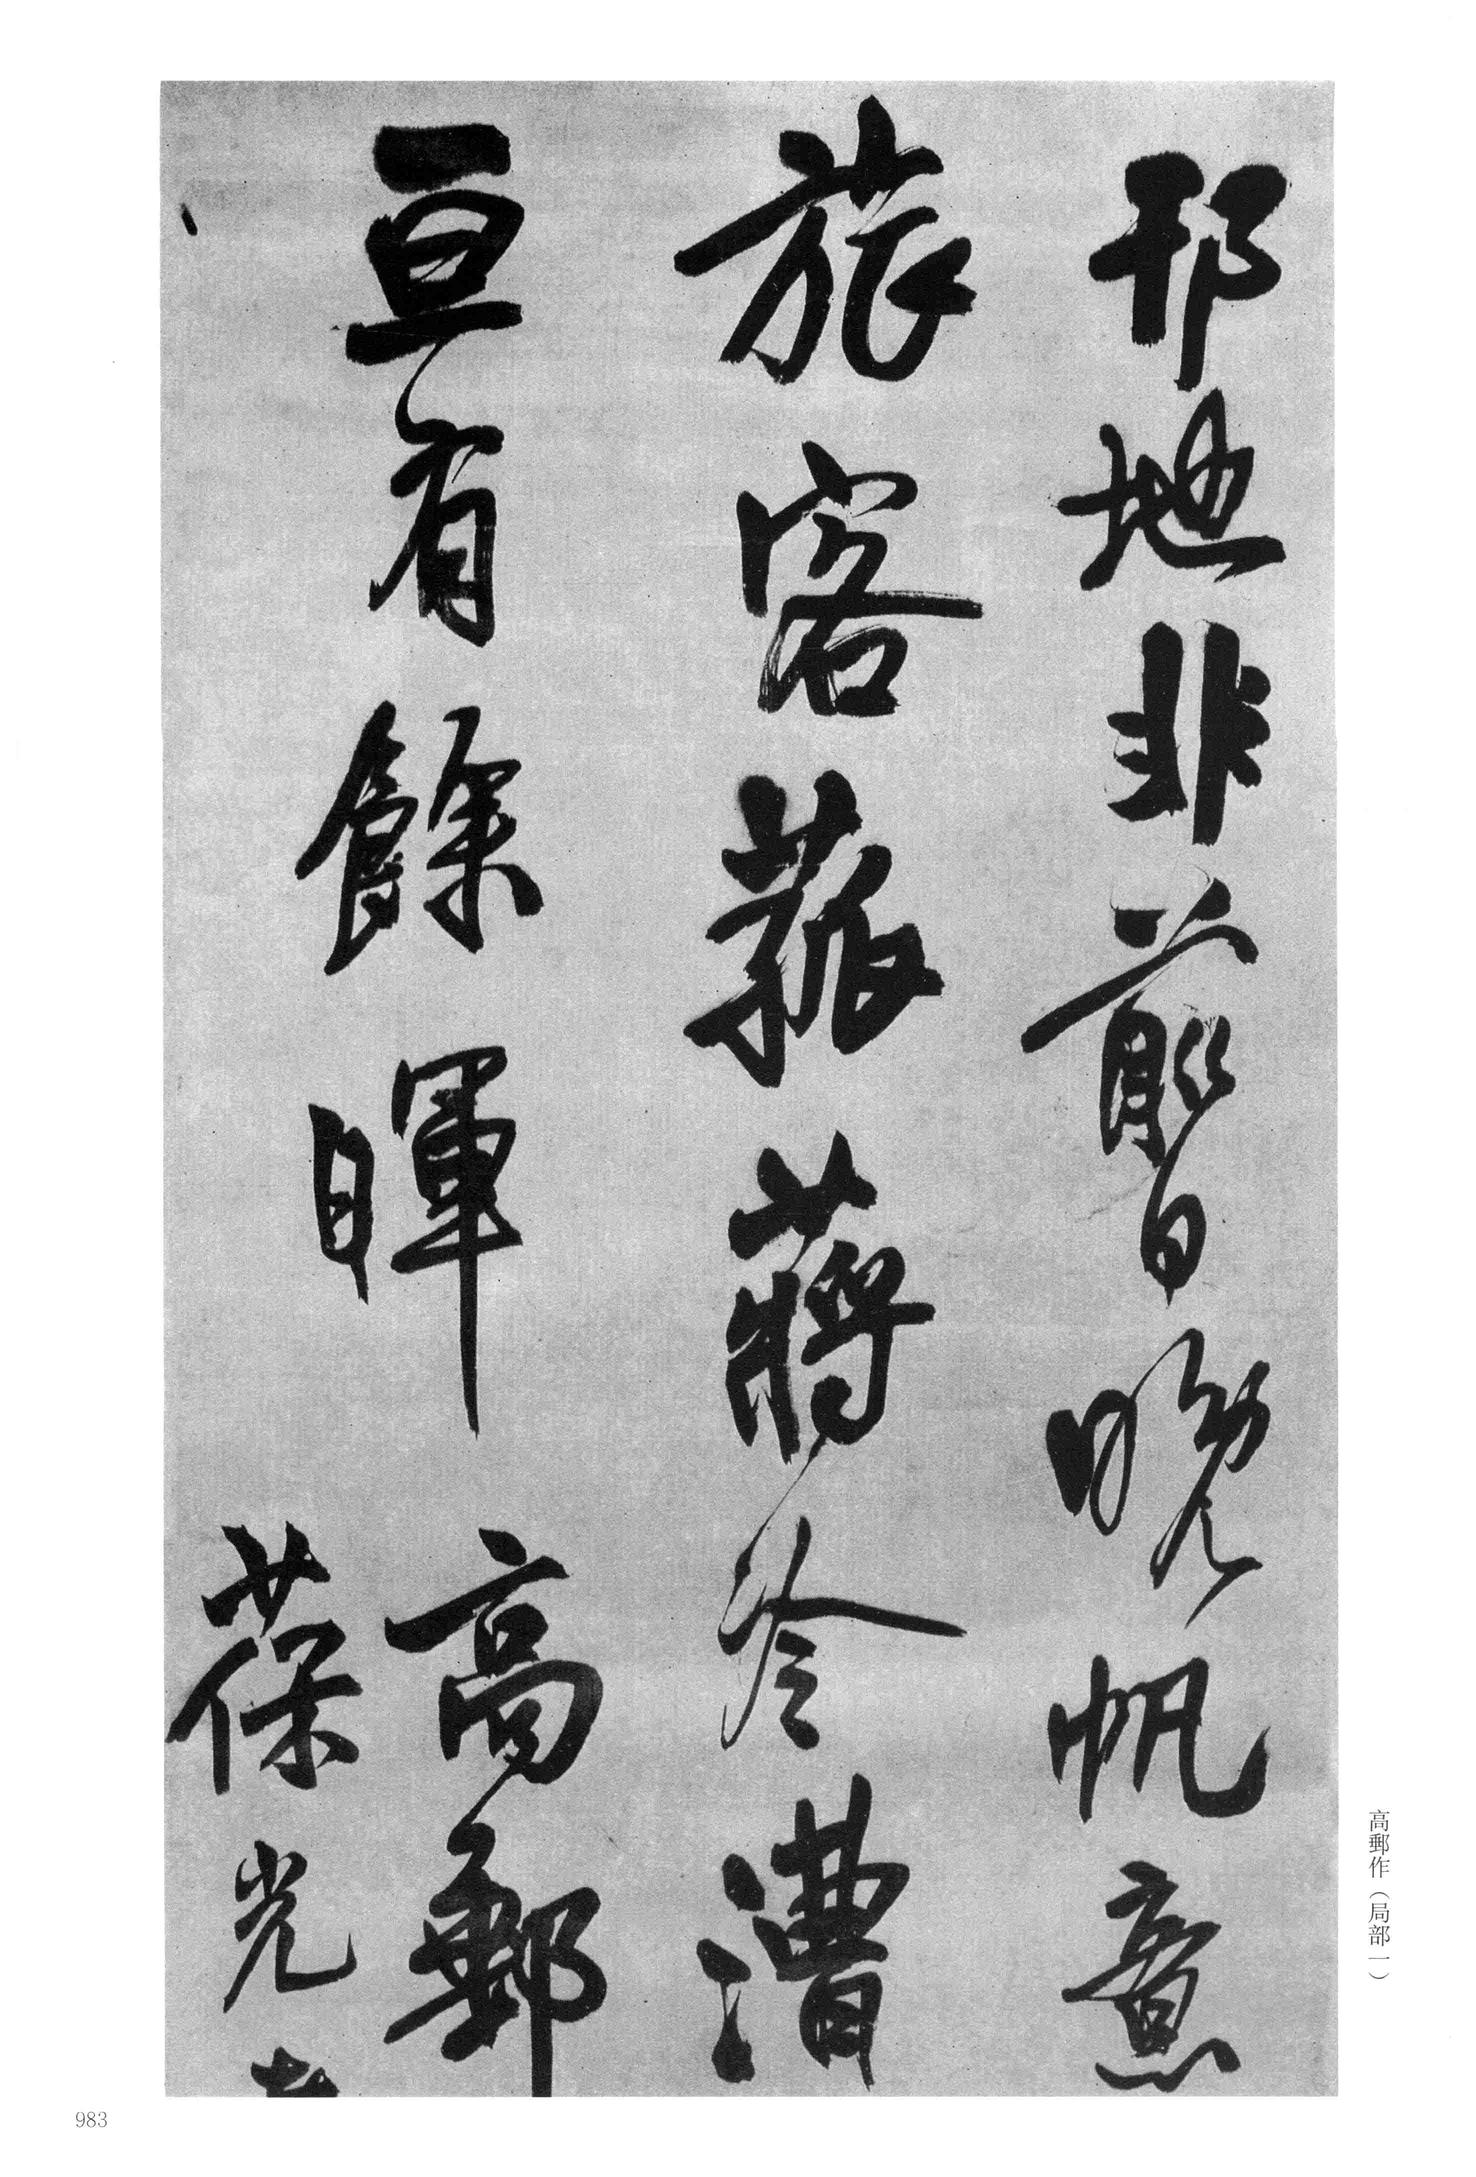 邗地非前日晚帆意
旅客菰蔣冷漕
亘有餘暉 高郵
葆光
高郵作（局部一）
983